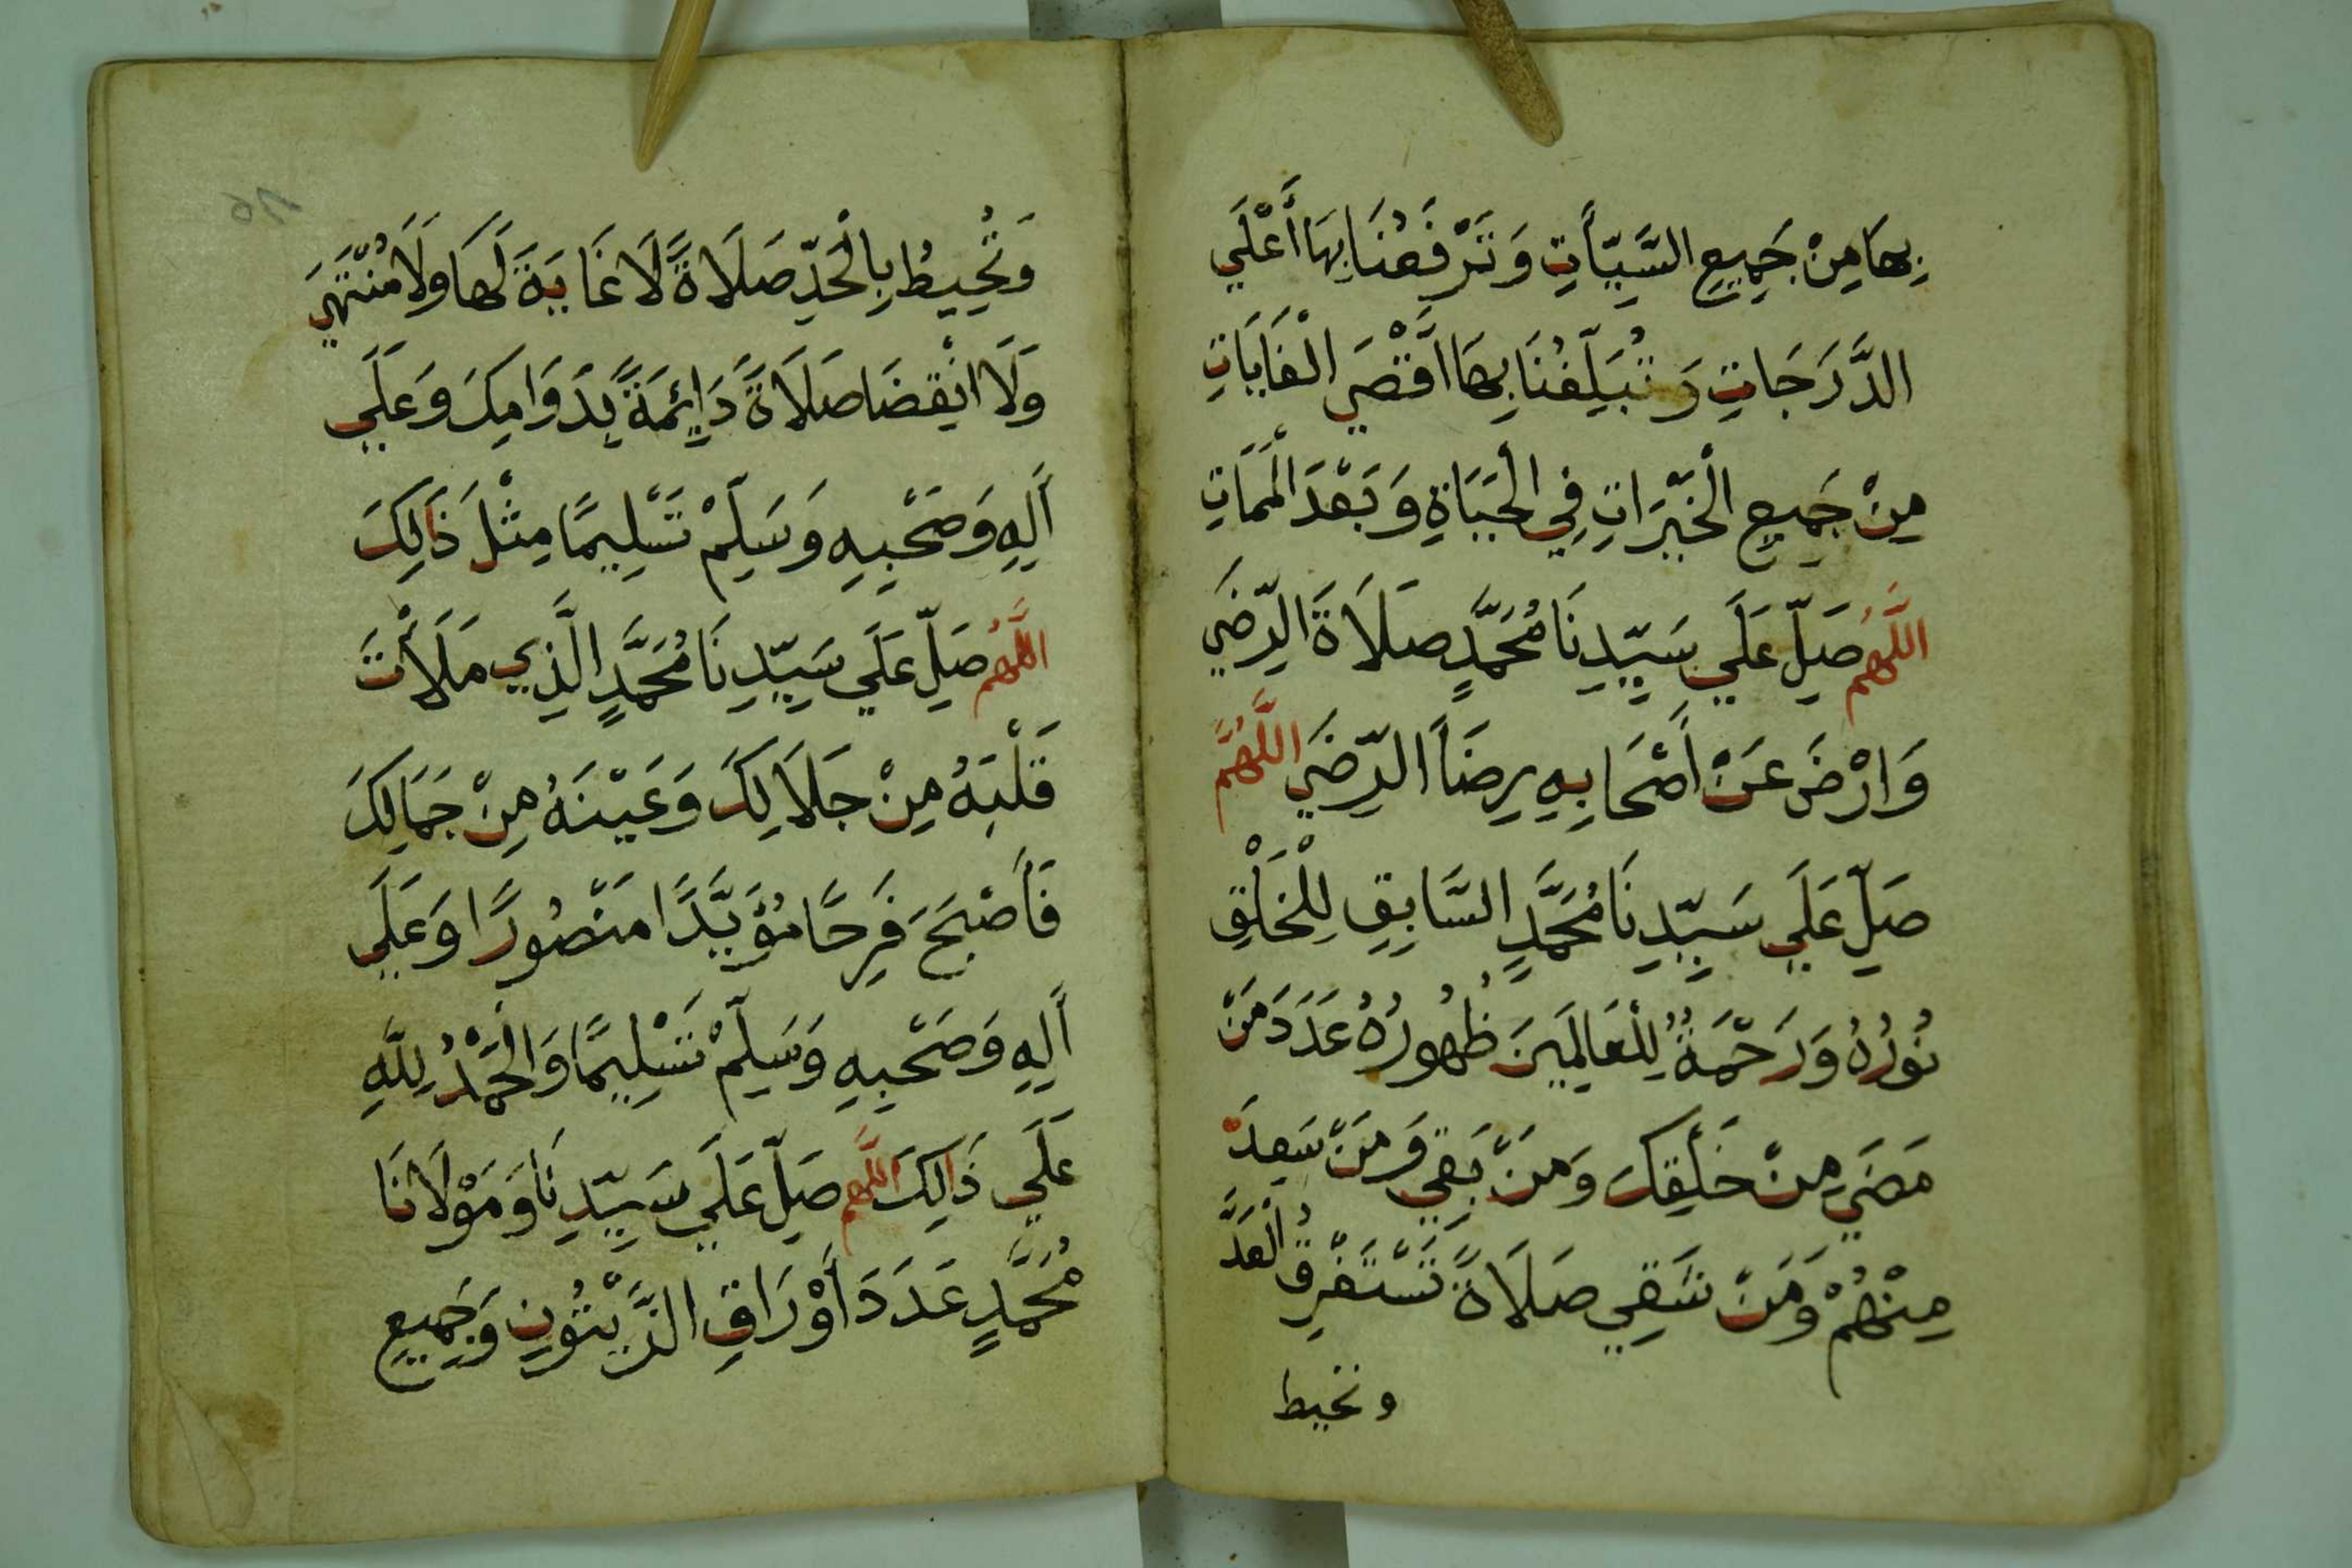 بِهَا مِنْ جَمِيعِ السَّيِّأَتِ وَتَرْفَعُنَا بِهَا أَعْلَي
الدَّرَجَاتِ وَتُبَلِّغُنَا بِهَا اَقْصَي الْغَايَاتِ
مِنْ جَمِيعِ الْخَيْرَاتِ فِي الْحَيَاةِ وَبَعْدَ الْمَمَاتِ
اللَّهُم صَلِّ عَلَي سَيِّدِنَا مُحَمَّدٍ صَلَاةَ الرِّضَي
وَارْضَ عَنْ أَصْحَابِهِ رِضَاَ الرِّضَي اللَّهُمَّ
صَلِّ عَلَي سَيِّدِنَا مُحَمَّدٍ السَّابِقِ لِلْخَلْقِ
نُورُهُ وَرَحْمَةٌ لِلْعَالَمِينَ ظُهُورُهُ عَدَدَ مَنْ
مَضَي مِنْ خَلْقِكَ وَمَنْ بَقِيَ وَمَنْ سَعِدَ
مِنْهُمْ وَمَنْ شَقِي صَلَاةً تَسْتَغْرِقُ الْعَدَّ
وتحيط
وَتُحِيطُ بِالْحَدِّ صَلَاةً لَا غَايَةَ لَهَا وَلَا مُنْتَهَي
وَلَا انْقِضَا صَلَاةً دَائِمَةً بِدَوَامِكَ وَعَلَي
أَلِهِ وَصَحْبِهِ وَسَلِّمْ تَسْلِيمًا مِثْلَ ذَالِكَ
اللَّهُم صَلِّ عَلَي سَيِّدِنَا مُحَمَّدٍ الَّذِي مَلَأْتَ
قَلْبَهُ مِنْ جَلَالِكَ وَعَيْنَهُ مِنْ جَمَالِكَ
فَأَصْبَحَ فَرِحًا مُؤَيَّدًا مَنْصُورًا وَعَلَي
أَلِهِ وَصَحْبِهِ وَسَلِّمْ تَسْلِيمًا وَالْحَمْدُ لِلَّهِ
عَلَي ذَالِكَ اللَّهُم صَلِّ عَلَي سَيِّدِنَا وَمَوْلَانَا
مُحَمَّدٍ عَدَدَ أَوْرَاقِ الزَّيْتُونِ وَجَمِيعِ